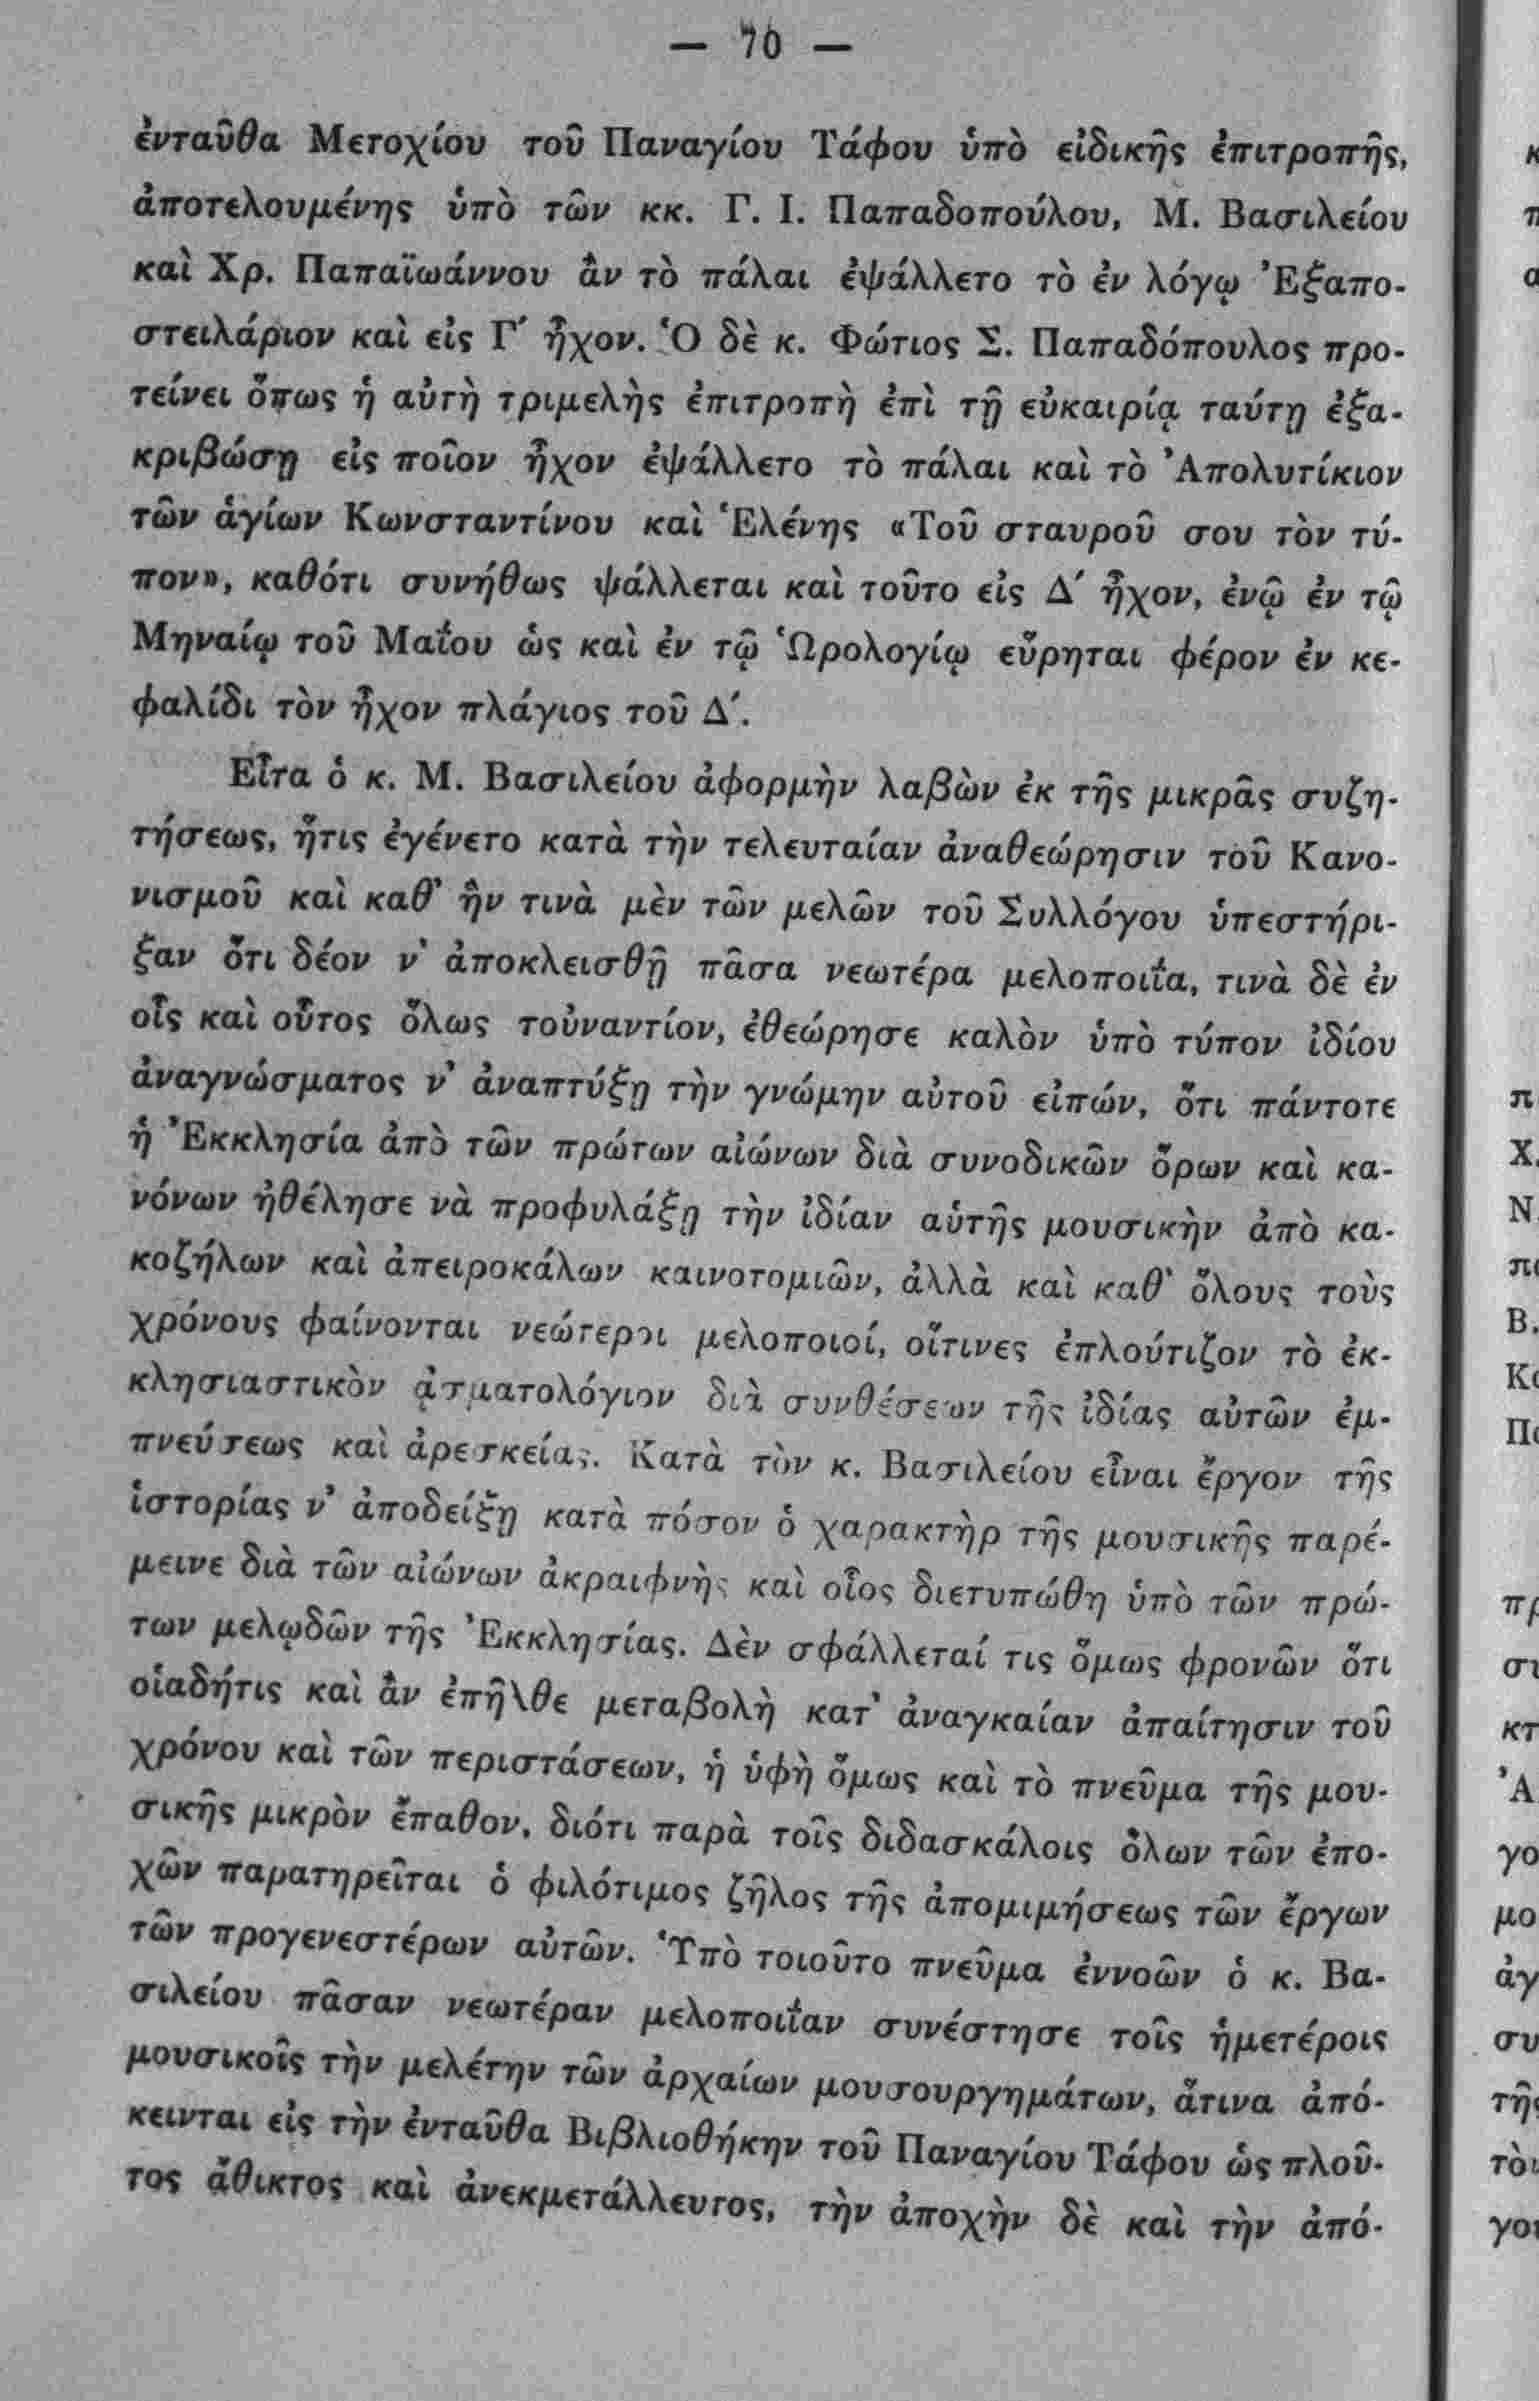 — 70 —
ἐνταῦθα Μετοχίου τοῦ Παναγίου Τάφου ὑπὸ εἰδικῆς ἐπιτροπῆς,
ἀποτελουμένης ὑπὸ τῶν κκ. Γ. Ι. Παπαδοπούλου, Μ. Βασιλείου
καὶ Χρ. Παπαϊωάννου ἂν τὸ πάλαι ἐψάλλετο τὸ ἐν λόγῳ Ἐξαπο-
στειλάριον καὶ εἰς Γ΄ ἦχον. Ὁ δὲ κ. Φώτιος Σ. Παπαδόπουλος προ-
τείνει ὅπως ἡ αὐτὴ τριμελὴς ἐπιτροπὴ ἐπὶ τῇ εὐκαιρίᾳ ταύτῃ ἐξα-
κριβώσῃ εἰς ποῖον ἦχον ἐψάλλετο τὸ πάλαι καὶ τὸ Ἀπολυτίκιον
τῶν ἁγίων Κωνσταντίνου καὶ Ἑλένης «Τοῦ σταυροῦ σου τὸν τύ-
πον», καθότι συνήθως ψάλλεται καὶ τοῦτο εἰς Δ΄ ἦχον, ἐνῷ ἐν τῷ
Μηναίῳ τοῦ Μαΐου ὡς καὶ ἐν τῷ Ὡρολογίῳ εὕρηται φέρον ἐν κε-
φαλίδι τὸν ἦχον πλάγιος τοῦ Δ΄.
Εἶτα ὁ κ. Μ. Βασιλείου ἀφορμὴν λαβὼν ἐκ τῆς μικρᾶς συζη-
τήσεως, ἥτις ἐγένετο κατὰ τὴν τελευταίαν ἀναθεώρησιν τοῦ Κανο-
νισμοῦ καὶ καθ' ἣν τινὰ μὲν τῶν μελῶν τοῦ Συλλόγου ὑπεστήρι-
ξαν ὅτι δέον ν' ἀποκλεισθῇ πᾶσα νεωτέρα μελοποιΐα, τινὰ δὲ ἐν
οἷς καὶ οὗτος ὅλως τοὐναντίον, ἐθεώρησε καλὸν ὑπὸ τύπον ἰδίου
ἀναγνώσματος ν' ἀναπτύξῃ τὴν γνώμην αὐτοῦ εἰπών, ὅτι πάντοτε
ἡ Ἐκκλησία ἀπὸ τῶν πρώτων αἰώνων διὰ συνοδικῶν ὅρων καὶ κα-
νόνων ἠθέλησε νὰ προφυλάξῃ τὴν ἰδίαν αὑτῆς μουσικὴν ἀπὸ κα-
κοζήλων καὶ ἀπειροκάλων καινοτομιῶν, ἀλλὰ καὶ καθ' ὅλους τοὺς
χρόνους φαίνονται νεώτεροι μελοποιοί, οἵτινες ἐπλούτιζον τὸ ἐκ-
κλησιαστικὸν ᾀσματολόγιον διὰ συνθέσεων τῆς ἰδίας αὐτῶν ἐμ-
πνεύσεως καὶ ἀρεσκείας. Κατὰ τὸν κ. Βασιλείου εἶναι ἔργον τῆς
ἱστορίας ν' ἀποδείξῃ κατὰ πόσον ὁ χαρακτὴρ τῆς μουσικῆς παρέ-
μεινε διὰ τῶν αἰώνων ἀκραιφνὴς καὶ οἷος διετυπώθη ὑπὸ τῶν πρώ-
των μελῳδῶν τῆς Ἐκκλησίας. Δὲν σφάλλεταί τις ὅμως φρονῶν ὅτι
οἱαδήτις καὶ ἂν ἐπῆλθε μεταβολὴ κατ' ἀναγκαίαν ἀπαίτησιν τοῦ
χρόνου καὶ τῶν περιστάσεων, ἡ ὑφὴ ὅμως καὶ τὸ πνεῦμα τῆς μου-
σικῆς μικρὸν ἔπαθον, διότι παρὰ τοῖς διδασκάλοις ὅλων τῶν ἐπο-
χῶν παρατηρεῖται ὁ φιλότιμος ζῆλος τῆς ἀπομιμήσεως τῶν ἔργων
τῶν προγενεστέρων αὐτῶν. Ὑπὸ τοιοῦτο πνεῦμα ἐννοῶν ὁ κ. Βα-
σιλείου πᾶσαν νεωτέραν μελοποιΐαν συνέστησε τοῖς ἡμετέροις
μουσικοῖς τὴν μελέτην τῶν ἀρχαίων μουσουργημάτων, ἅτινα ἀπό-
κεινται εἰς τὴν ἐνταῦθα Βιβλιοθήκην τοῦ Παναγίου Τάφου ὡς πλοῦ-
τος ἄθικτος καὶ ἀνεκμετάλλευτος, τὴν ἀποχὴν δὲ καὶ τὴν ἀπό-